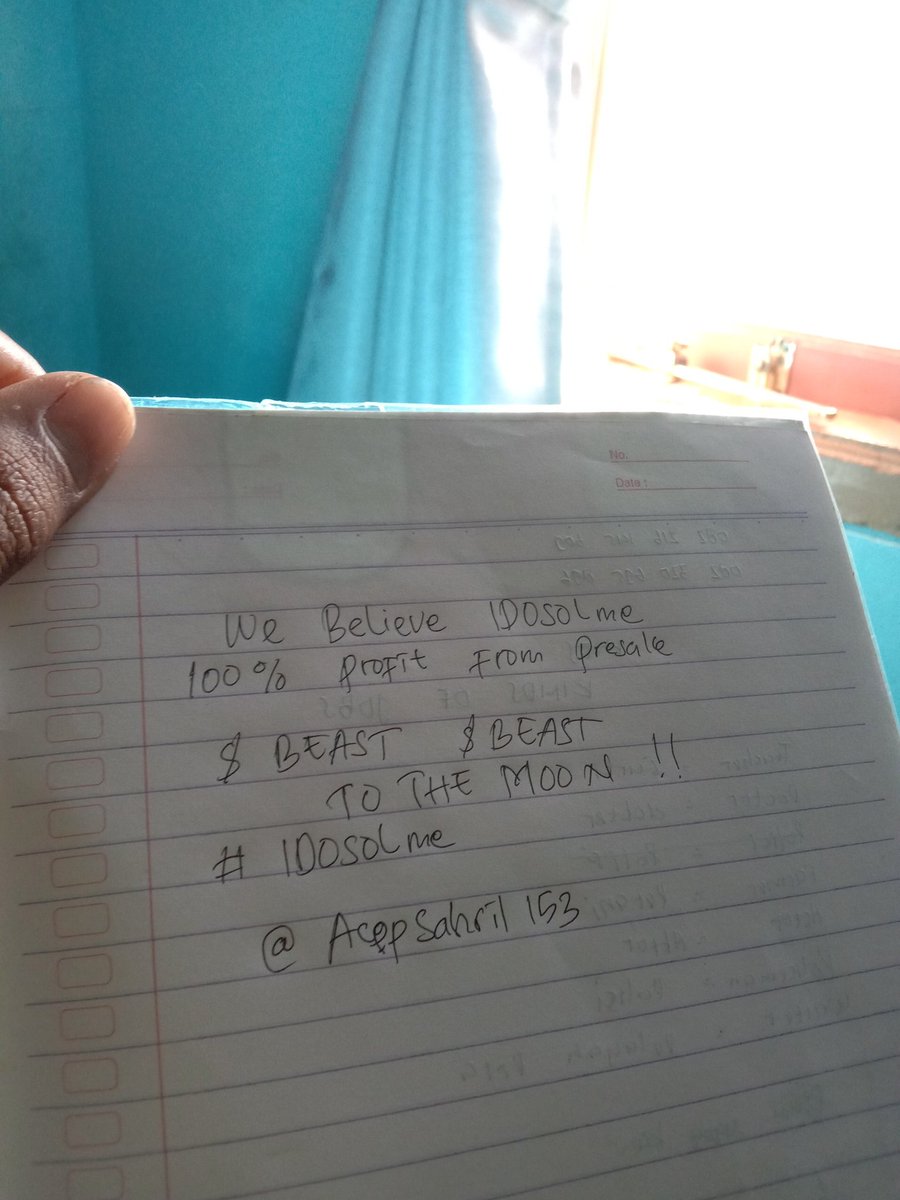 No.
Date :
We Believe IDOSOLme
100% Profit From Presale
$ BEAST $ BEAST
TO THE MOON !!
# IDOSOLme
@ Acepsahril153